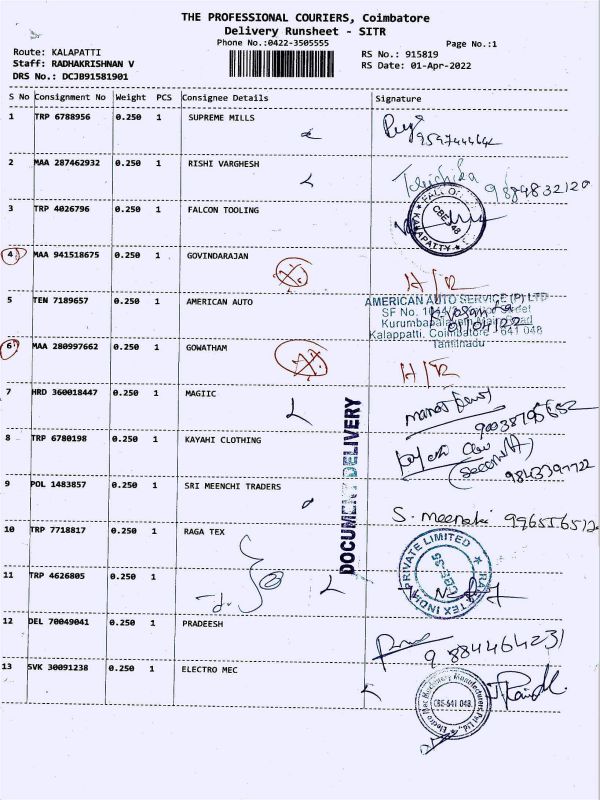 THE PROFESSIONAL COURIERS, Coimbatore
Delivery Runsheet - SITR
Phone No.:0422-3505555
Page No.:1
Route: KALAPATTI
Staff: RADHAKRISHNAN V
DRS No.: DCJB91581901
RS No.: 915819
RS Date: 01-Apr-2022
S No Consignment No Weight PCS Consignee Details Signature
1 TRP 6788956 0.250 1 SUPREME MILLS
2 MAA 287462932 0.250 1 RISHI VARGHESH
9884832120
3 TRP 4026796 0.250 1 FALCON TOOLING
KALAPATTY
CBE-48
4 MAA 941518675 0.250 1 GOVINDARAJAN
H/R
5 TEN 7189657 0.250 1 AMERICAN AUTO
AMERICAN AUTO SERVICE (P) LTD
SF No.
Kurumbapalayam Main Road
Kalappatti, Coimbatore - 641 048
Tamilnadu
01/04/22
6 MAA 280997662 0.250 1 GOWATHAM
H/R
7 HRD 360018447 0.250 1 MAGIIC
8 TRP 6780198 0.250 1 KAYAHI CLOTHING
(Security)
DOCUMENT DELIVERY
9 POL 1483857 0.250 1 SRI MEENCHI TRADERS
S. meenakshi
10 TRP 7718817 0.250 1 RAGA TEX
RAGA TEX INDIA PRIVATE LIMITED
CBE-35
11 TRP 4626805 0.250 1
12 DEL 70049041 0.250 1 PRADEESH
9884464231
13 SVK 30091238 0.250 1 ELECTRO MEC
Electro Mec Machinery Manufacturers Pvt Ltd.,
CBS-641 048.